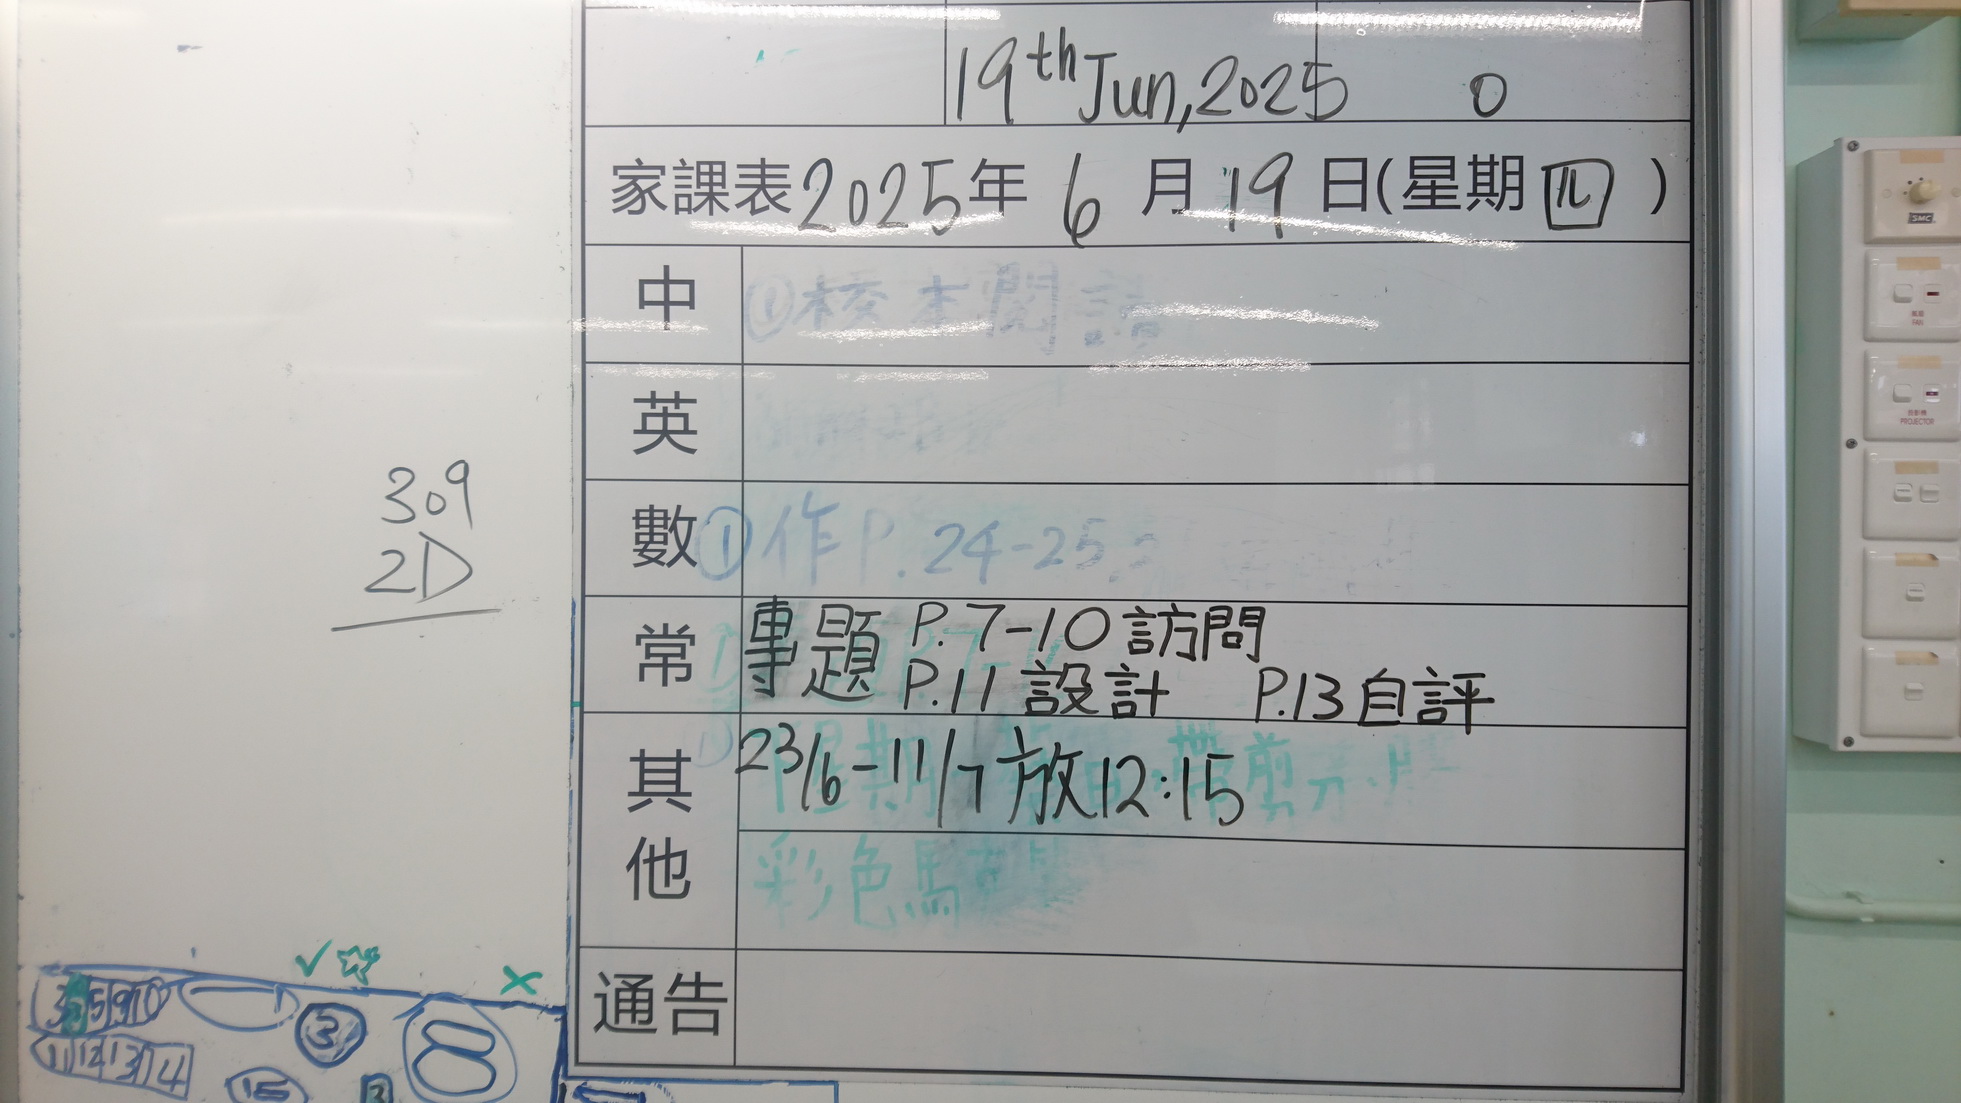 19th Jun, 2025 0
家課表 2025年 6月 19日(星期四)
中 ①校本閱
英
數 ①作P.24-25
309
2D
常 專題 P.7-10 訪問
P.11 設計 P.13 自評
其他
23/6-11/7 放12:15
彩色
通告
✓ ☆ ×
3 5 9 10
11 12 13 14
3
8
15
SMC
FAN
PROJECTOR